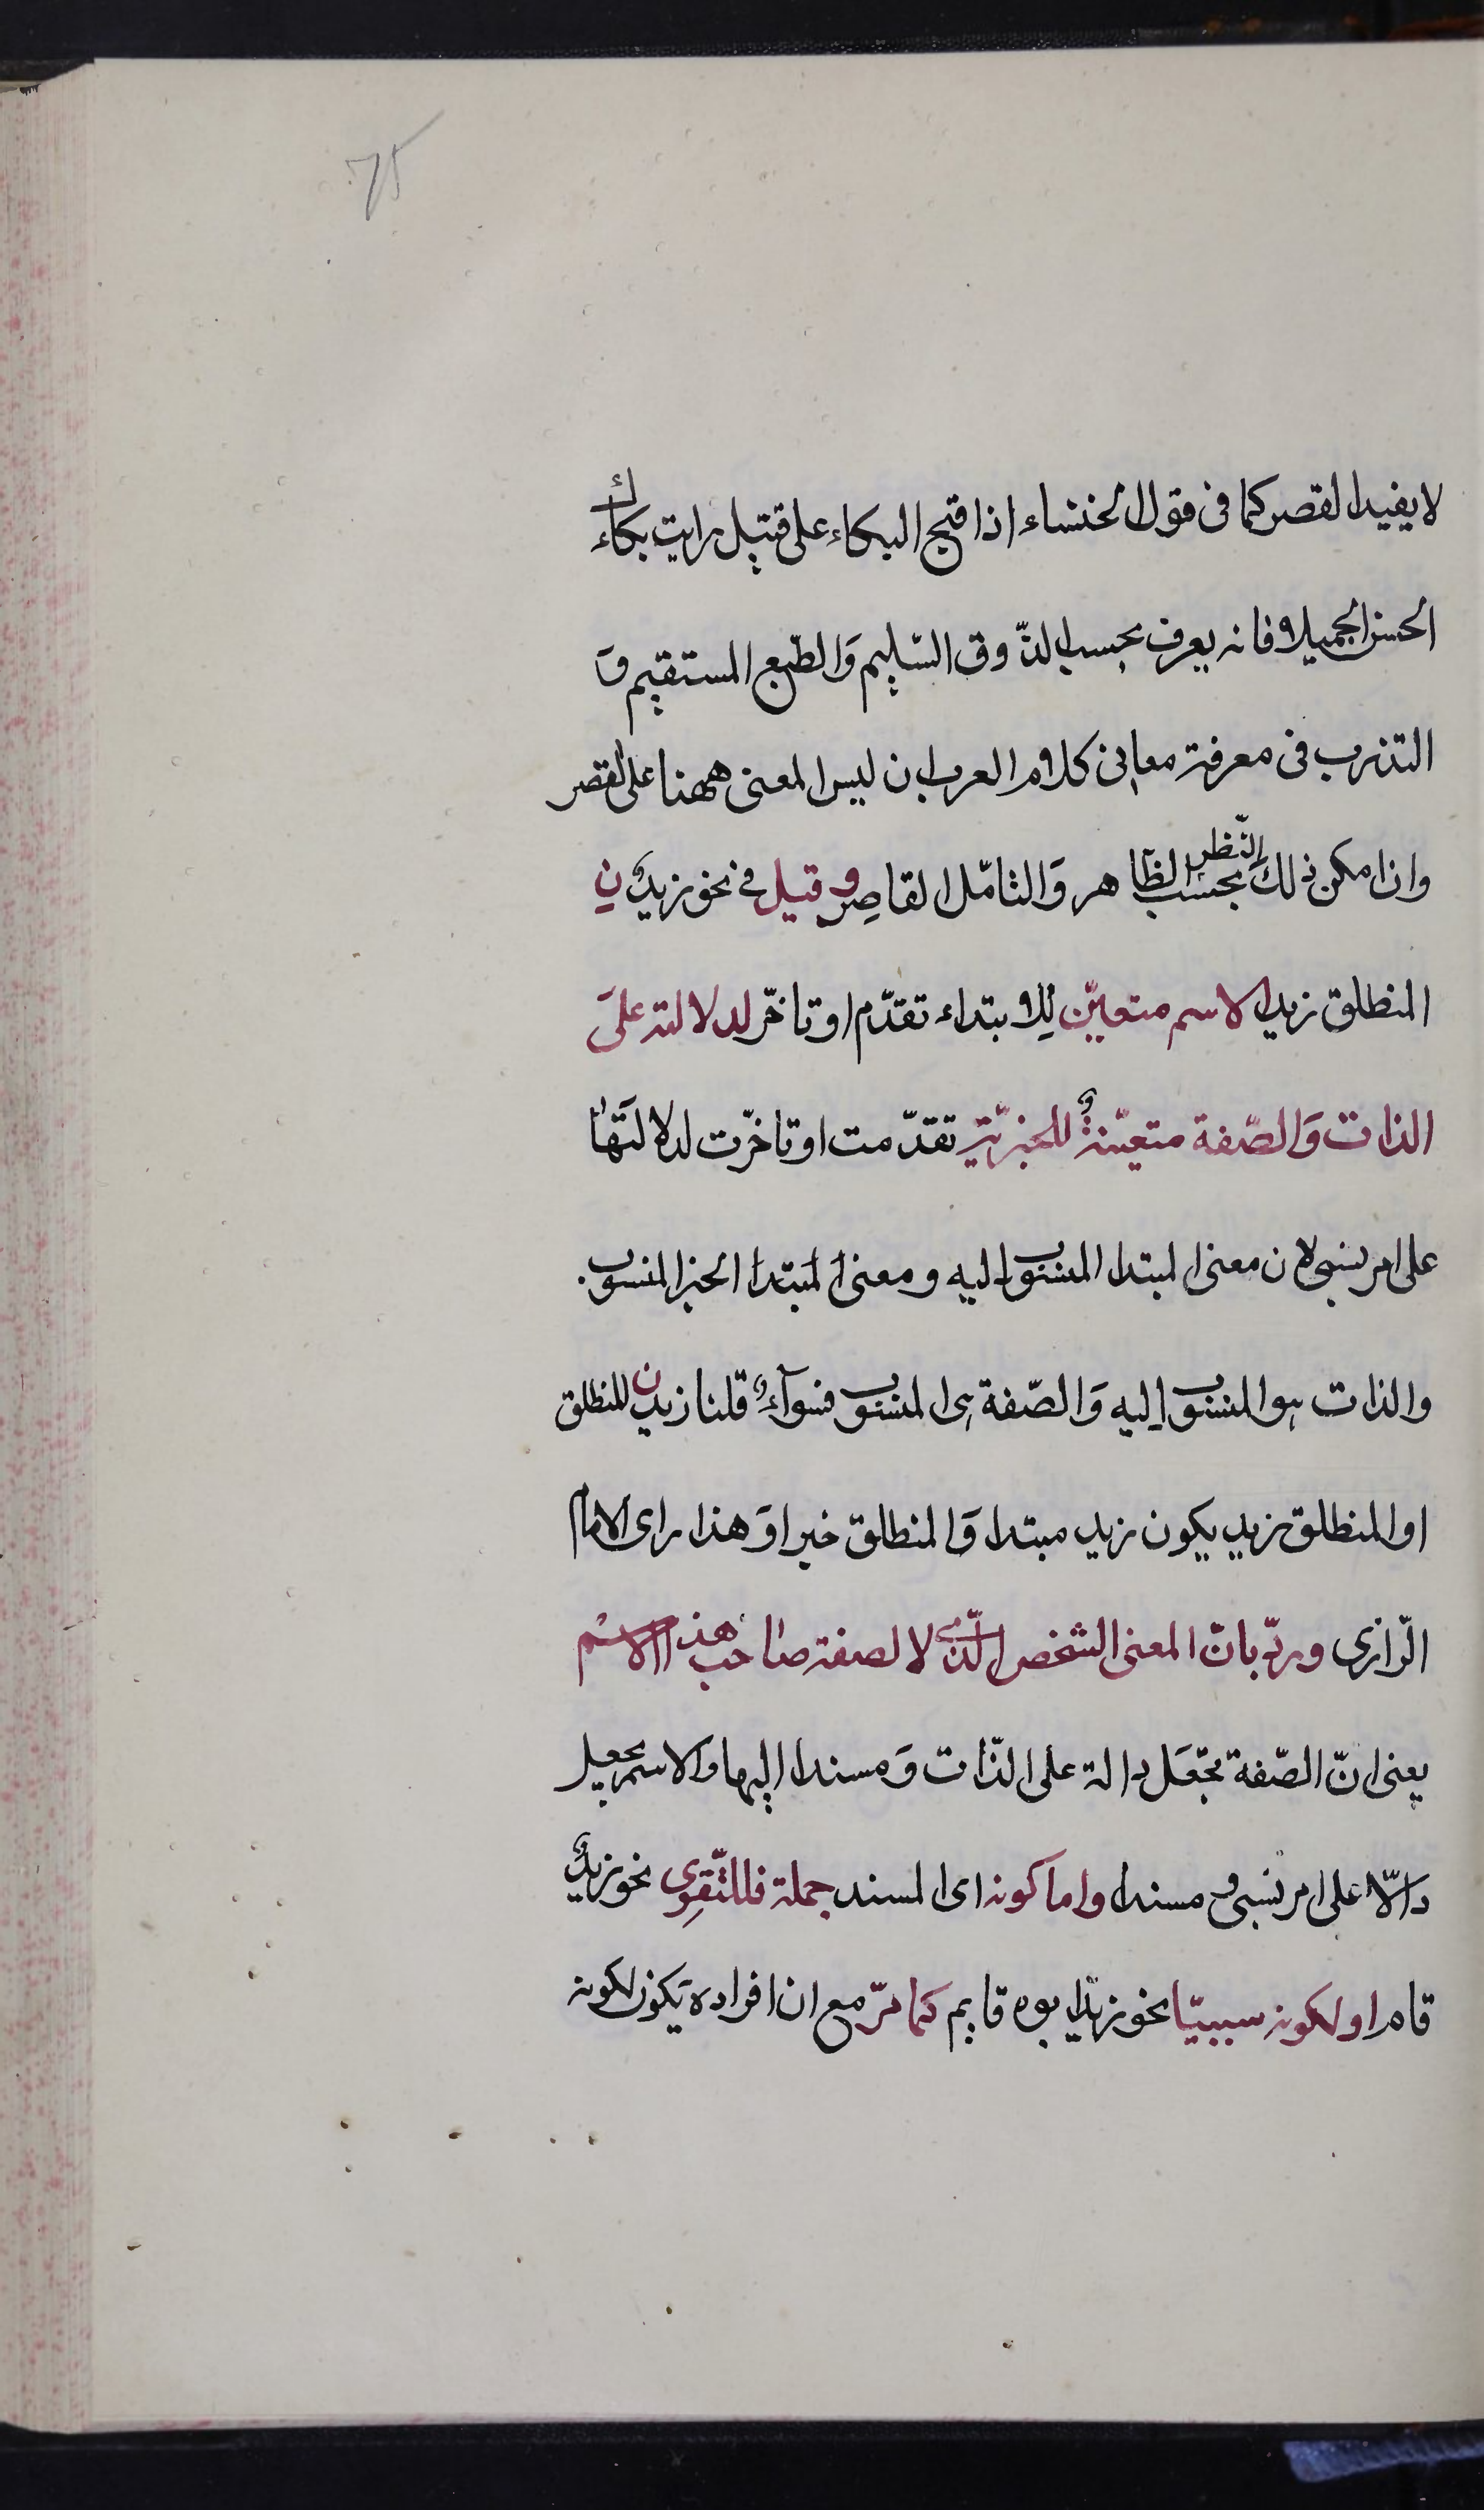 75
لا يفيد القصر كما فى قول الخنشاء اذا قبح البكاء على قتيل رايت بكاءك
الحسن الجميلا فانه يعرف بحسب الذّوق السّليم وَالطّبع المستقيم وَ
التدرب فى معرفة معانى كلام العرب ان ليس المعنى ههنا على القصر
وان امكن ذلك بحسب النّظر الظاهر وَالتامّل القاصِر وقيل فى نحو زيدٌنِ
المنطلق زيد الاسم متعيّن لِلابتداء تقدّم او تاخّر لدلالته علىَ
الذات وَالصّفة متعيّنةٌ للخبريّة تقدّمت او تاخّرت لدلالتَها
على امر نسبى لان معنى المبتدا المنسوب اليه ومعنى المبتدا الخبر المنسوب
والذات هو المنسوب اِليه وَالصّفة هى المنسوب فسوآءٌ قلنا زيدن المنطلق
او المنطلق زيد يكون زيد مبتدا وَالمنطلق خبرا وَهذا راى الامام
الرّازى وردّ بانّ المعنى الشخص الّذى لا لصفة صاحب هذا الاسْم
يعنى انّ الصّفة تجّعَل دالة على الذّات وَمسندا اليها والاسم يجعل
دالّا على امر نسبى ومسندا واما كونه اى المسند جملة فللتّقوِى نحو زيدٌ
قام او لكونه سببيّا نحو زيدٌ ابوه قايم كما مرّ مع ان افراده يَكون لكونه